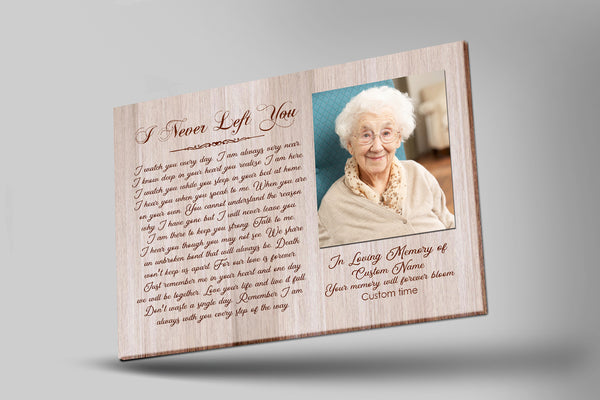 I Never Left You
I watch you every day. I am always very near.
I know deep in your heart you realize I am here
I watch you while you sleep in your bed at home
I hear you when you speak to me. When you are
on your own. You cannot understand the reason
why I have gone but I will never leave you.
I am there to keep you strong. Talk to me.
I hear you though you may not see. We share
an unbroken bond that will always be. Death
won't keep us apart. For our love is forever.
Just remember me in your heart and one day
we will be together. Love your life and live it full.
Don't waste a single day. Remember I am
always with you every step of the way.
In Loving Memory of
Custom Name
Your memory will forever bloom
Custom time